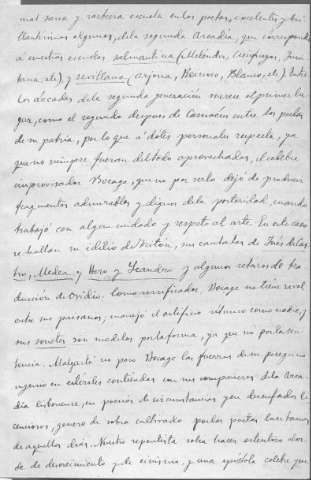 mas sana y sincera escuela entre los poetas, excelentes y bri
llantísimos algunos, de la segunda Arcadia, que corresponde
á nuestras escuelas salmantina (Meléndez, Cienfuegos,
etc) y sevillana (Arjona, Reinoso, Blanco, etc.) Entre
los árcades de la segunda generación merece el primer lu
gar, como el segundo despues de Camoens entre los poetas
de su patria, por lo que á dotes personales respecta, ya
que no siempre fueron del todo aprovechadas, el célebre
improvisador Bocage, que no por serlo dejó de producir
fragmentos admirables y dignos de la posteridad, cuando
trabajó con algun cuidado y respeto al arte. En este caso
se hallan su idilio de Tritón, sus cantatas de Inés de Cas
tro, Medea y Hero y Leandro y algunos retazos de tra
ducción de Ovidio. Como versificador, Bocage no tiene rival
entre sus paisanos, manejó el artificio rítmico como nadie, y
sus sonetos son modelos por la forma, ya que no por la sen
tencia. Malgastó un poco Bocage las fuerzas de su peregrino
ingenio en estériles contiendas con sus compañeros de la Arca
dia lisbonense, en poesías de circunstancias y en desenfados li
cenciosos, género de sobra cultivado por los poetas lusitanos
de aquellos días. Nuestro repentista solia hacer ostentoso alar
de de descreimiento y de cinismo, y una epístola célebre que